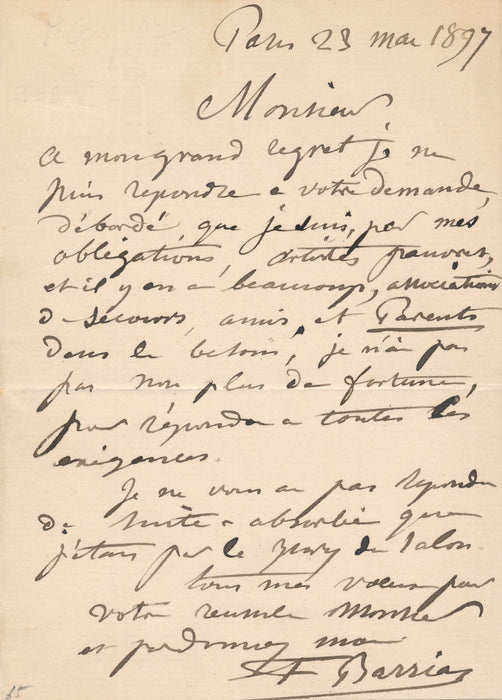 Paris 23 mai 1897
Monsieur
A mon grand regret je ne
puis repondre a votre demande,
débordé, que je suis, par mes
obligations, artistes pauvres,
et il y en a beaucoup, associations
de secours, amis, et Parents
dans le besoin, je n'ai pas
par non plus de fortune,
pour répondre a toutes les
exigences.
Je ne vous ai pas repondu
de suite absorbé que
j'étais par le Jury du Salon
tous mes voeux pour
votre reussite Monsieur
et pardonnez moi
F Barrias